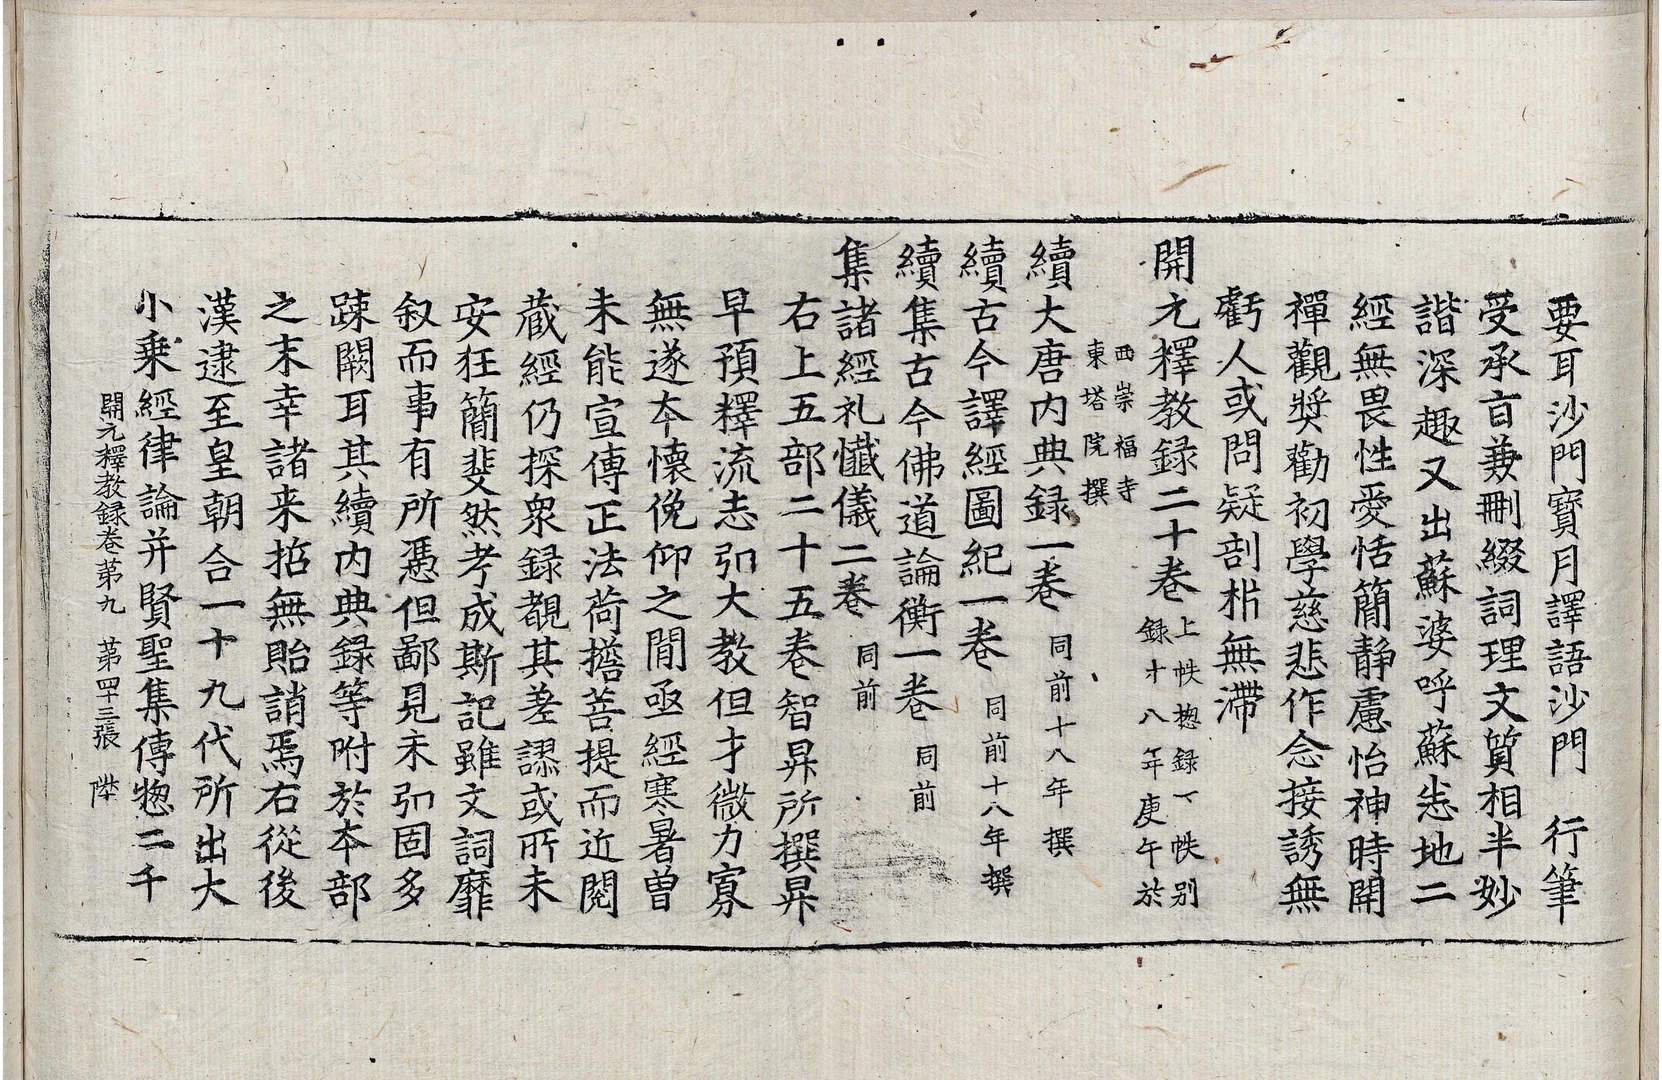 要耳沙門寳月譯語沙門一行筆
受承旨兼刪綴詞理文質相半妙
諧深趣又出蘇婆呼蘇悉地二
經無畏性愛恬簡靜慮怡神時開
禪觀奬勸初學慈悲作念接誘無
虧人或問疑剖析無滯
開元釋教録二十卷 上帙揔録下帙别
録十八年庚午於
西崇福寺
東塔院撰
續大唐内典録一卷 同前十八年撰
續古今譯經圖紀一卷 同前十八年撰
續集古今佛道論衡一卷 同前
集諸經礼懺儀二卷 同前
右上五部二十五卷智昇所撰昇
早預釋流志弘大教但才微力寡
無遂本懷俛仰之間亟經寒暑曽
未能宣傳正法荷擔菩提而近閱
藏經仍探衆録覩其差謬或所未
安狂簡斐然考成斯記雖文詞靡
叙而事有所憑但鄙見未弘固多
踈闕耳其續内典録等附於本部
之末幸諸来括無貽誚焉右從後
漢逮至皇朝合一十九代所出大
小乗經律論并賢聖集傳惣二千
開元釋教録卷第九 第四十三張 陛